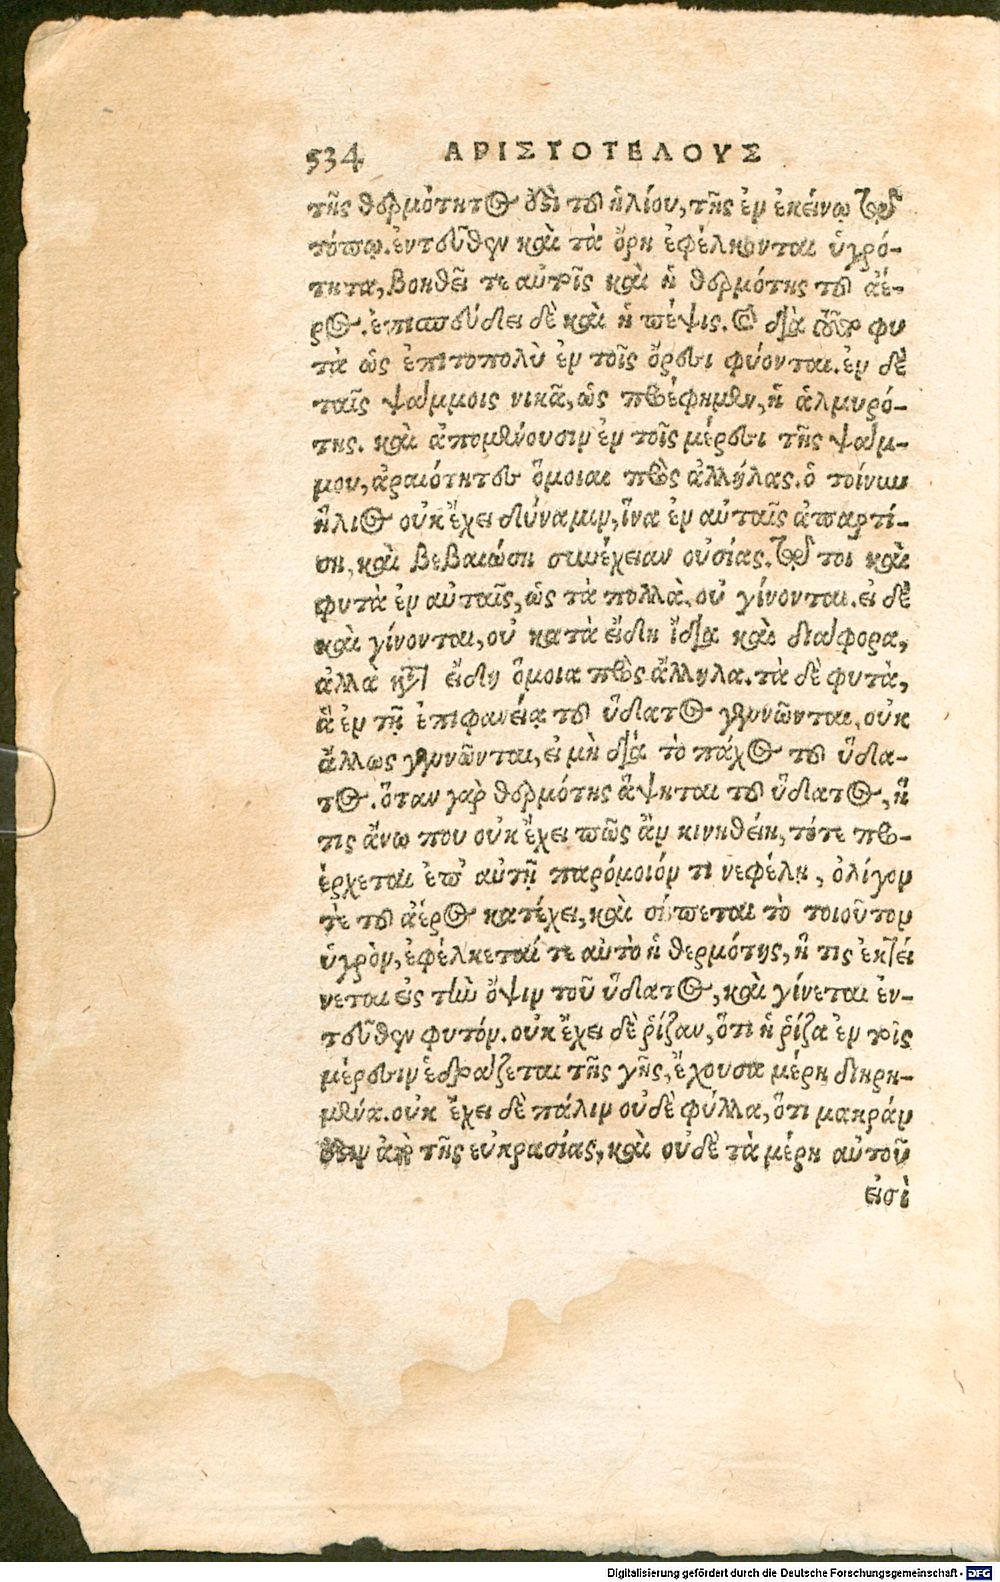 534 ΑΡΙΣΤΟΤΕΛΟΥΣ
τῆς θερμότητος διὰ τοῦ ἡλίου, τῆς ἐν ἐκείνῳ τῷ
τόπῳ. ἐντεῦθεν καὶ τὰ ὄρη ἐφέλκονται ὑγρό-
τητα, βοηθεῖ τε αὐτοῖς καὶ ἡ θερμότης τοῦ ἀέ-
ρος. ἐπισπεύδει δὲ καὶ ἡ πέψις. καὶ διὰ τοῦτο φυ
τὰ ὡς ἐπιτοπολὺ ἐν τοῖς ὄρεσι φύονται. ἐν δὲ
ταῖς ψάμμοις νικᾶ, ὡς προέφημεν, ἡ ἁλμυρό-
της. καὶ ἀπομένουσιν ἐν τοῖς μέρεσι τῆς ψάμ-
μου, ἀραιότητες ὅμοιαι πρὸς ἀλλήλας. ὁ τοίνυν
ἥλιος οὐκ ἔχει δύναμιν, ἵνα ἐν αὐταῖς ἀπαρτί-
ση, καὶ βεβαιώση συνέχειαν οὐσίας. τῷ τοι καὶ
φυτὰ ἐν αὐταῖς, ὡς τὰ πολλὰ, οὐ γίνονται. εἰ δὲ
καὶ γίνονται, οὐ κατὰ εἴδη ἴδια καὶ διάφορα,
ἀλλὰ κατ' εἴδη ὅμοια πρὸς ἄλληλα. τὰ δὲ φυτὰ,
ἃ ἐν τῇ ἐπιφανείᾳ τοῦ ὕδατος γεννῶνται, οὐκ
ἄλλως γεννῶνται, εἰ μὴ διὰ τὸ πάχος τοῦ ὕδα-
τος. ὅταν γὰρ θερμότης ἅψηται τοῦ ὕδατος, ἥ
τις ἄνω που οὐκ ἔχει πῶς ἂν κινηθείη, τότε προ-
έρχεται ἐπ' αὐτῇ παρόμοιόν τι νεφέλῃ, ὀλίγον
τὲ τοῦ ἀέρος κατέχει, καὶ σήπεται τὸ τοιοῦτον
ὑγρὸν, ἐφέλκεταί τε αὐτὸ ἡ θερμότης, ἥ τις ἐκτεί
νεται εἰς τὴν ὄψιν τοῦ ὕδατος, καὶ γίνεται ἐν-
τεῦθεν φυτόν. οὐκ ἔχει δὲ ῥίζαν, ὅτι ἡ ῥίζα ἐν τοῖς
μέρεσιν ἑδράζεται τῆς γῆς, ἔχουσα μέρη διηρη-
μένα. οὐκ ἔχει δὲ πάλιν οὐδὲ φύλλα, ὅτι μακράν
ἐστιν ἀπὸ τῆς εὐκρασίας, καὶ οὐδὲ τὰ μέρη αὐτοῦ
εἰσὶ
Digitalisierung gefördert durch die Deutsche Forschungsgemeinschaft - DFG